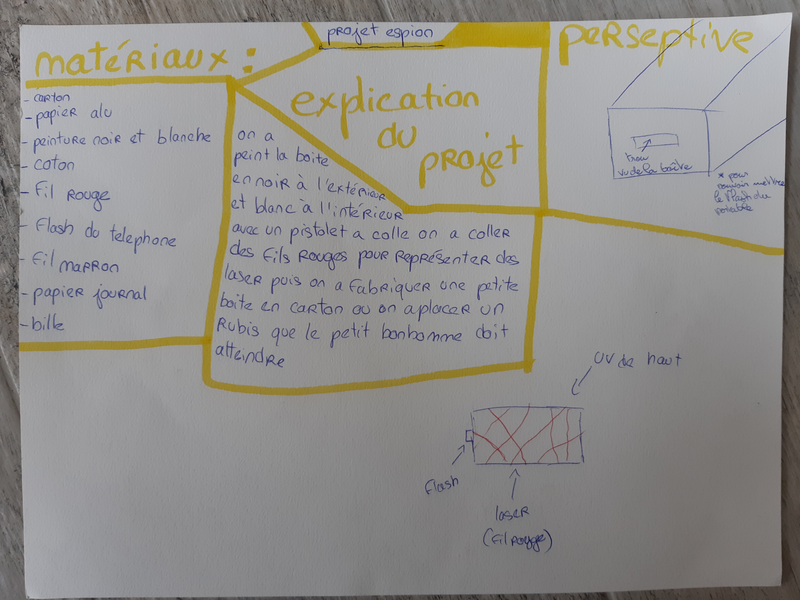 projet espion
matériaux :
- carton
- papier alu
- peinture noir et blanche
- coton
- fil rouge
- flash du telephone
- fil marron
- papier journal
- bille
explication
du
projet
on a
peint la boite
en noir à l'extérieur
et blanc à l'intérieur
avec un pistolet a colle on a coller
des fils rouges pour représenter des
laser puis on a fabriquer une petite
boite en carton ou on a placer un
rubis que le petit bonhomme doit
atteindre
perseptive
trou
vu de la boîte
* pour
pouvoir mettre
le flash du
portable
UV de haut
flash
laser
(fil rouge)